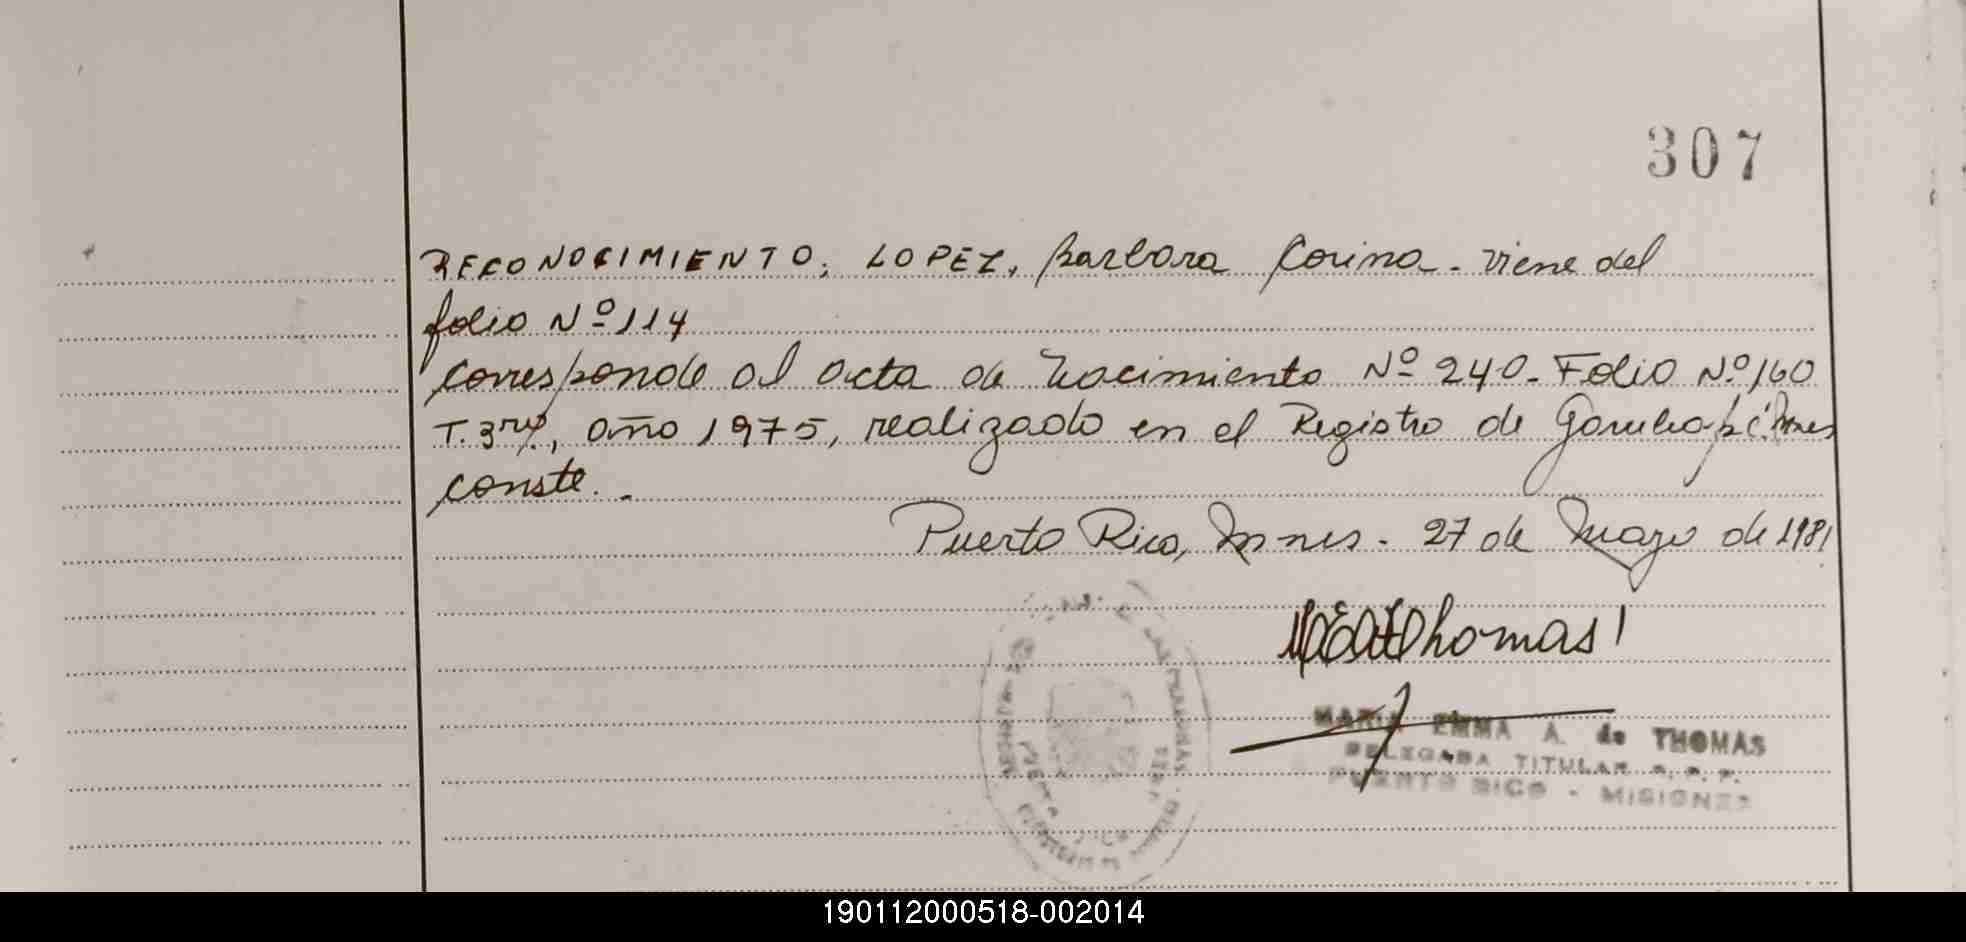 307
RECONOCIMIENTO: LOPEZ, Barbara Corina. Viene del
folio Nº 114
corresponde al acta de Nacimiento Nº 240. Folio Nº 160
T. 3rº, año 1975, realizado en el Registro de Garuhapé. Mnes
conste.
Puerto Rico, Mnes. 27 de Mayo de 1981
Thomas
MARIA EMMA A. de THOMAS
DELEGADA TITULAR R. P. P.
PUERTO RICO - MISIONES
190112000518-002014